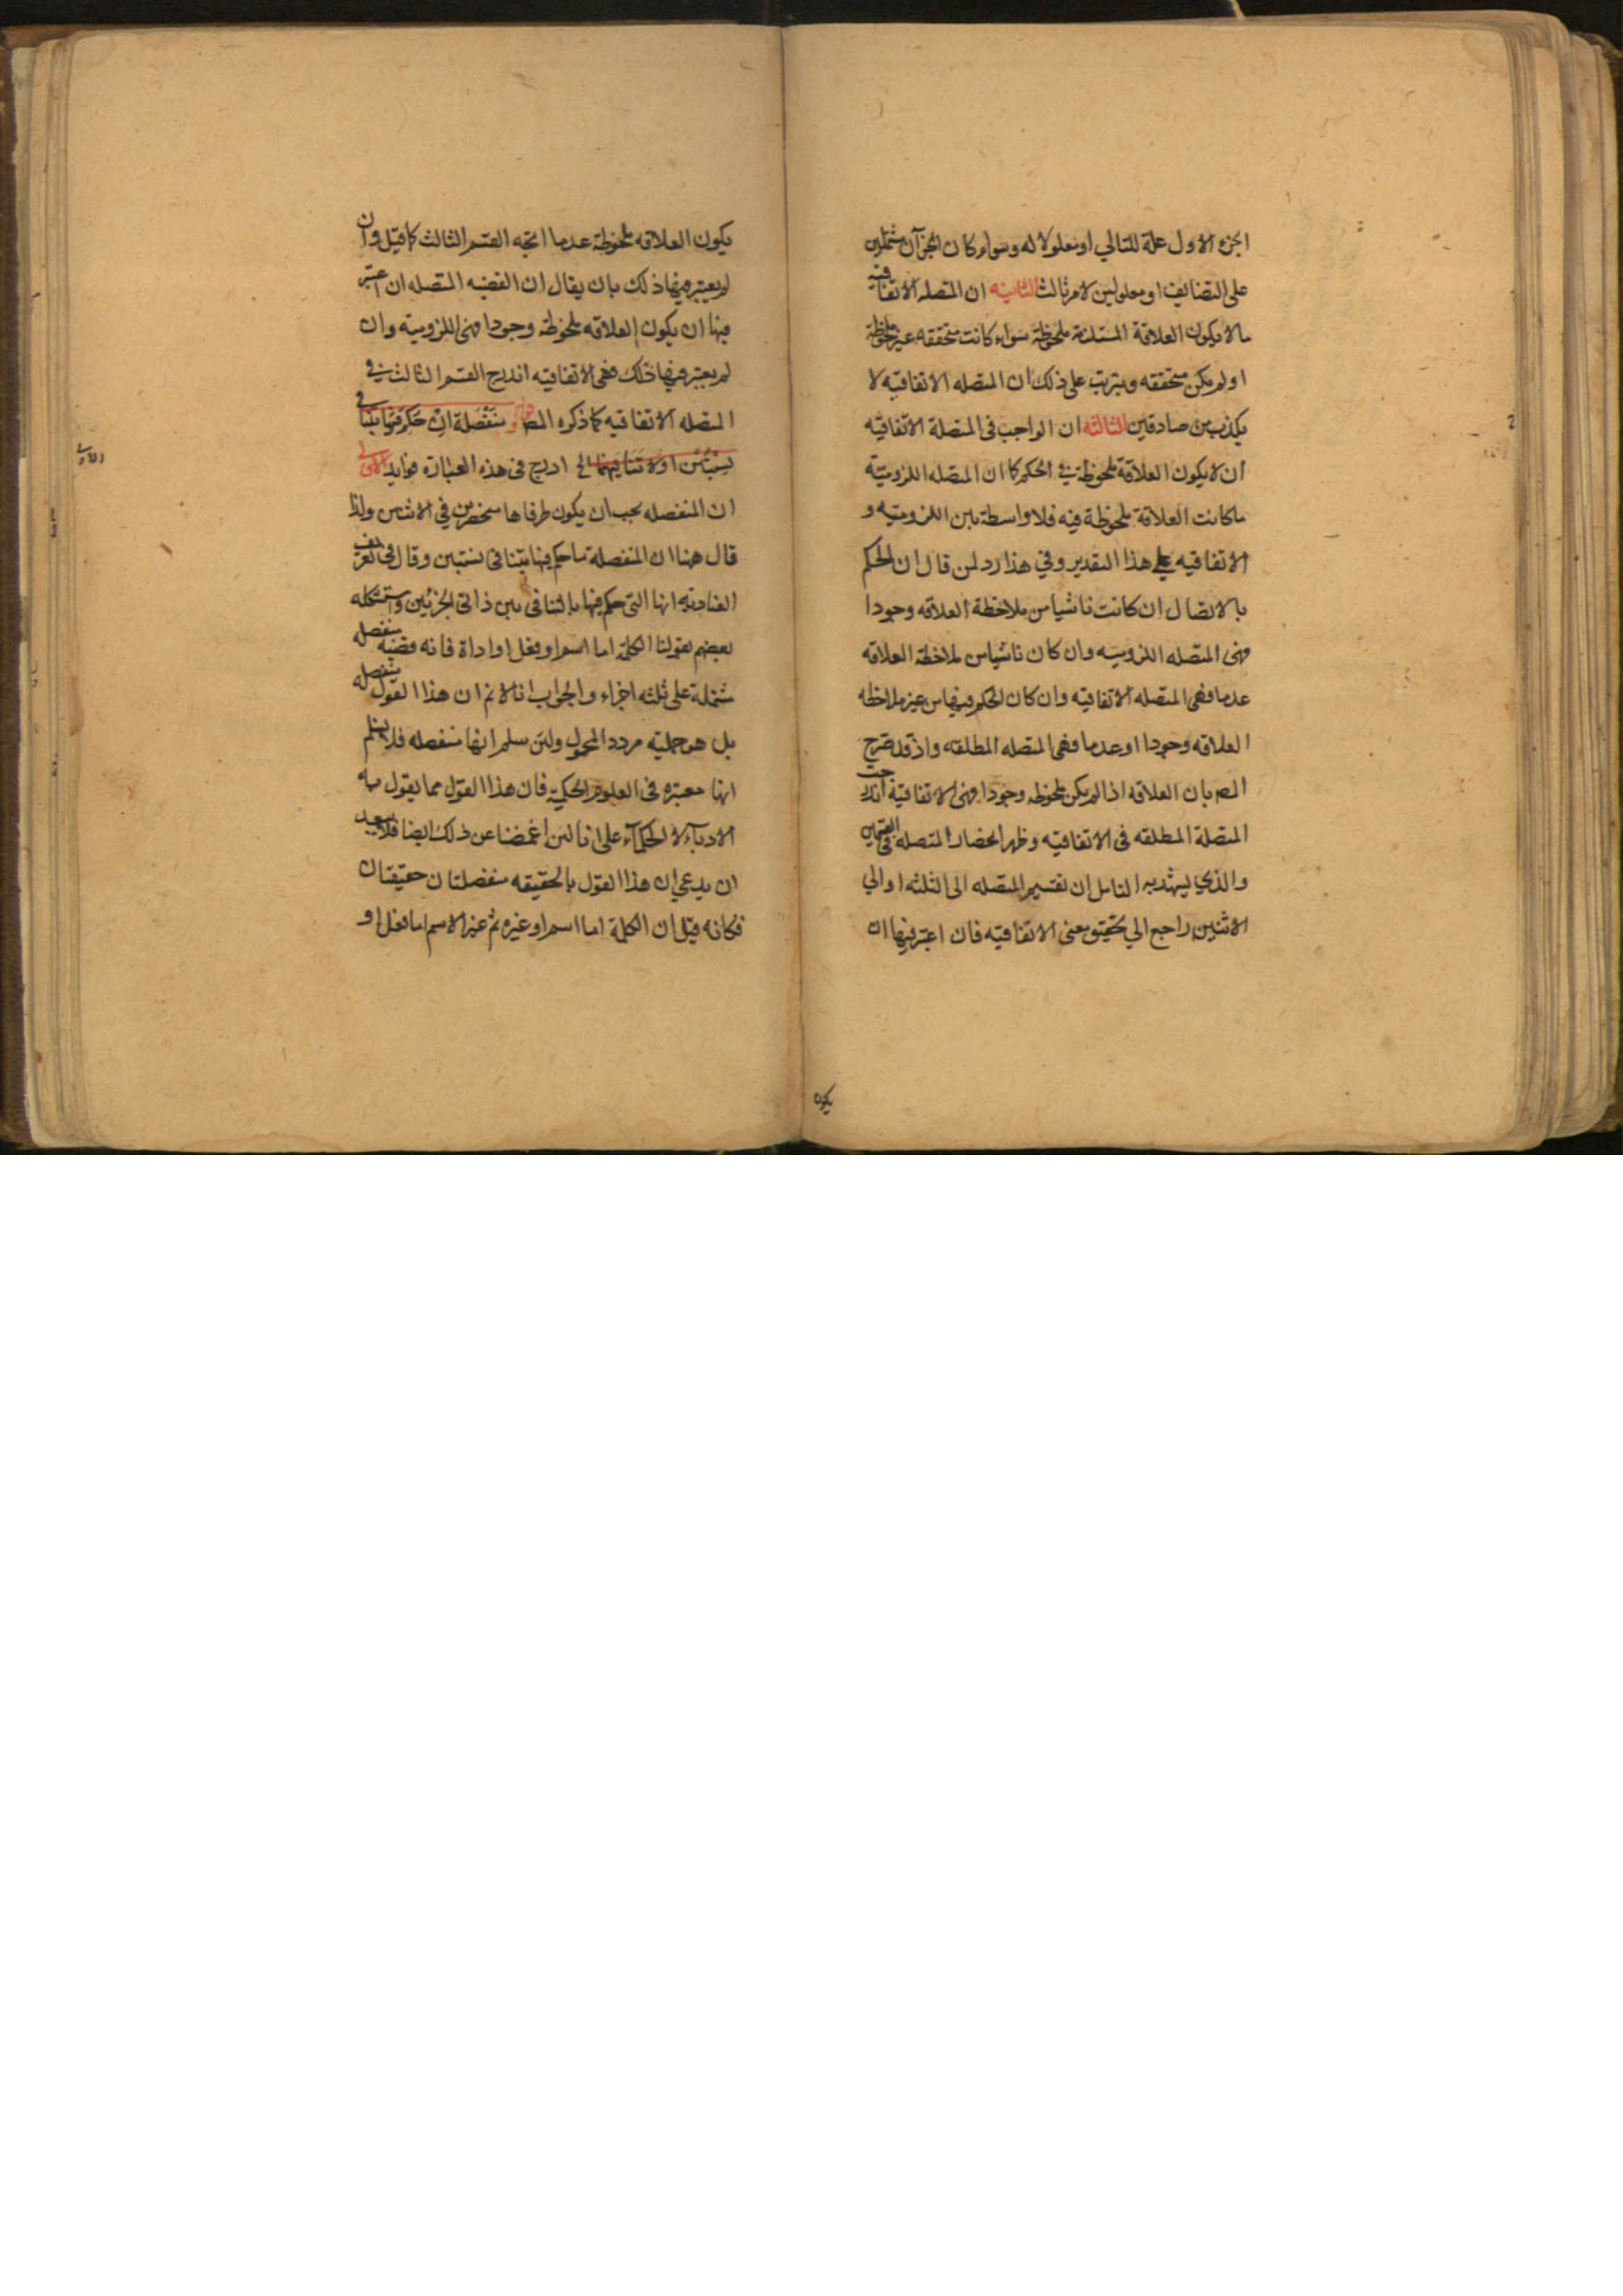 الجزء الاول علة للتالي او معلولا له وسواء كان الجزآن مشتملين
على التضايف او معلولين لامر ثالث الثانيه ان المتصله الاتفاقيه
مالا يكون العلاقة المستلزمة ملحوظة سواء كانت متحققه غير ملحوظة
او لم يكن متحققه ويترتب على ذلك ان المتصله الاتفاقيه لا
يكذب من صادقين الثالثه ان الواجب فى المتصلة الاتفاقيه
ان لا يكون العلاقة ملحوظة في الحكم كما ان المتصله اللزوميّة
ما كانت العلاقة ملحوظة فيه فلا واسطة بين اللزوميه و
الاتفاقيه على هذا التقدير وفي هذا رد لمن قال ان الحكم
بالاتصال ان كانت ناشيا من ملاحظة العلاقه وجودا
فهى المتصله اللزوميه وان كان ناشيا من ملاحظة العلاقه
عدما فهى المتصله الاتفاقيه وان كان الحكم فيها من غير ملاحظه
العلاقه وجودا او عدما فهى المتصله المطلقه واذ قد صرح
المص بان العلاقه اذا لم يكن ملحوظه وجودا فهى الاتفاقية اندرجت
المتصلة المطلقه فى الاتفاقيه وظهر انحصار المتصله فى القسمين
والذي ليهتدى به التامل ان تقسيم المتصله الى الثلثه او الي
الاثنين راجع الي تحقيق معنى الاتفاقيه فان اعتبر فيها ان
يكون
يكون العلاقه ملحوظة عدما اتجه القسم الثالث كما قيل وان
لم يعتبر فيها ذلك بان يقال ان القضيه المتصله ان اعتبر
فيها ان يكون العلاقه ملحوظة وجودا فهى اللزوميه وان
لم يعتبر فيها ذلك فهى الاتفاقيه اندرج القسم الثالث في
المتصله الاتفاقيه كما ذكره المص منفصلة ان حكم فيها بتنافى
نسبتين او لا تنافيهما الخ ادرج فى هذه العبارة فوايد الاولى
ان المنفصله يجب ان يكون طرفاها منحصرين في الاثنين ولذا
قال هنا ان المنفصلة ما حكم فيها بتنافى نسبتين وقال فى تعريف
العناديه انها التى حكم فيها بالتنافى بين ذاتى الجزئين واستشكله
بعضهم بقولنا الكلمة اما اسم او فعل او اداة فانه قضيه منفصله
مشتملة على ثلثه اجزاء والجواب انا لا نم ان هذا القول منفصله
بل هو حمليه مردد المحمول ولئن سلم انها منفصله فلا يسلم
انها معتبره فى العلوم الحكمية فان هذا القول مما يقول به
الادباء لا الحكمآء على انا لئن اغمضنا عن ذلك ايضا فلا يبعد
ان يدعي ان هذا القول بالحقيقه منفصلتان حقيقتان
فكانه قيل ان الكلمة اما اسم او غيره ثم غير الاسم اما فعل او